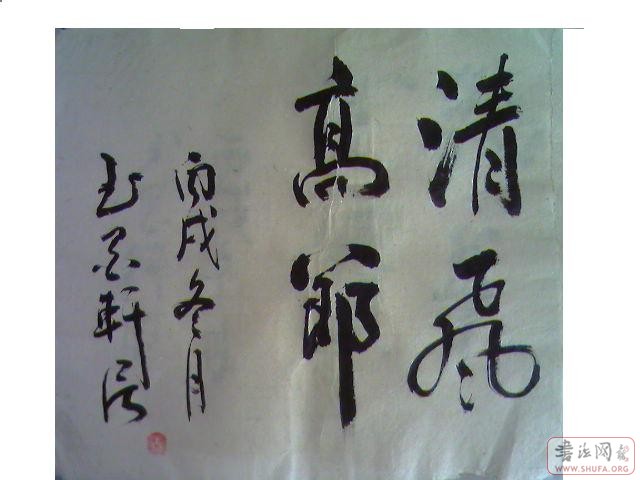 清風
高節
丙戌冬月
书法网
WWW.SHUFA.ORG